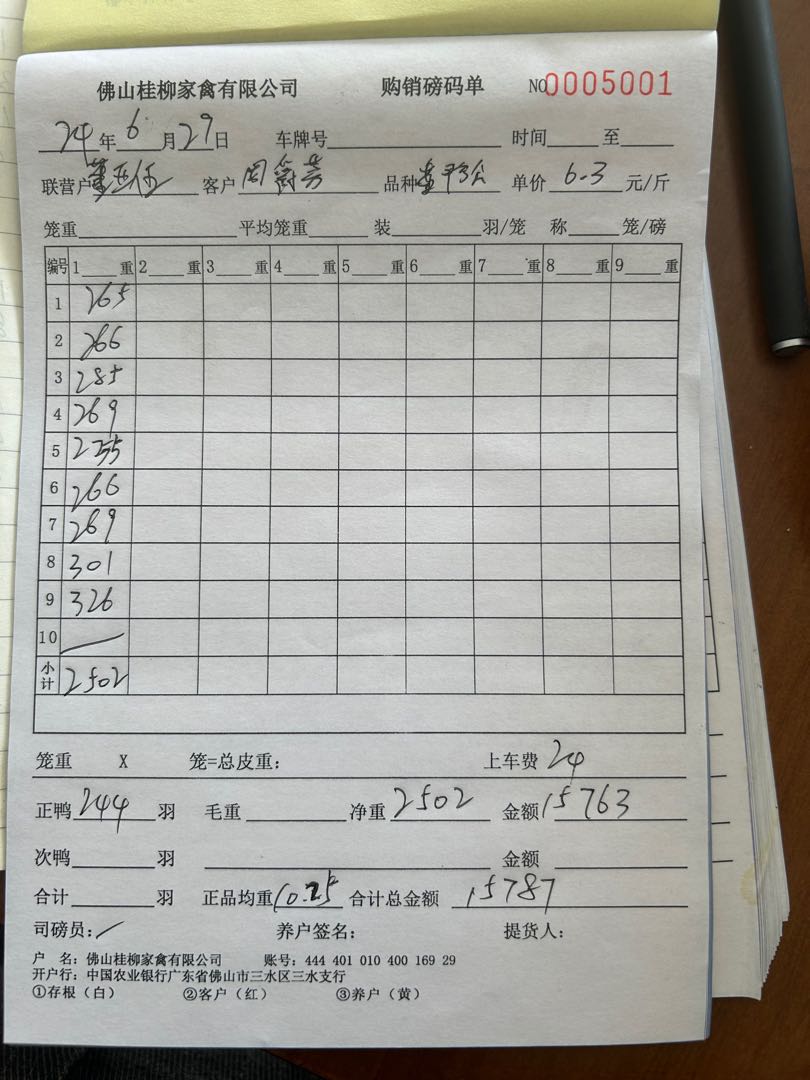 佛山桂柳家禽有限公司 购销磅码单 NO0005001
24年6月29日 车牌号 时间 至
联营户 客户 品种 单价 6.3 元/斤
笼重 平均笼重 装 羽/笼 称 笼/磅
编号 1 重 2 重 3 重 4 重 5 重 6 重 7 重 8 重 9 重
1 265
2 266
3 285
4 269
5 255
6 266
7 269
8 301
9 326
10 —
小计 2502
笼重 X 笼=总皮重: 上车费 24
正鸭 244 羽 毛重 净重 2502 金额 15763
次鸭 羽 金额
合计 羽 正品均重 10.25 合计总金额 15787
司磅员: 养户签名: 提货人:
户 名: 佛山桂柳家禽有限公司 账号: 444 401 010 400 169 29
开户行: 中国农业银行广东省佛山市三水区三水支行
①存根（白） ②客户（红） ③养户（黄）